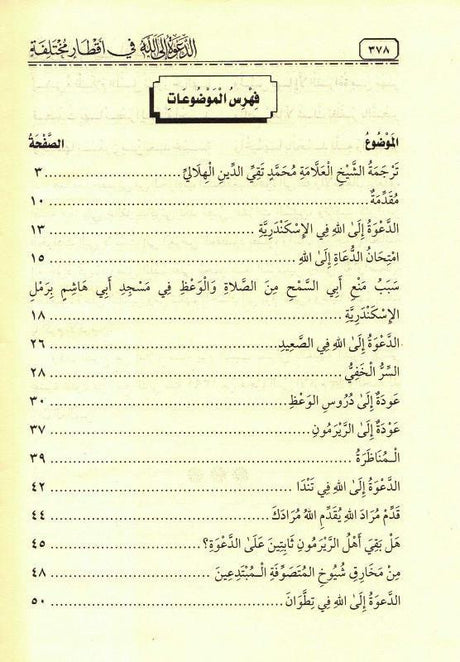 ٣٧٨ الدَّعْوَةُ إِلَى اللهِ فِي أَقْطَارٍ مُخْتَلِفَةٍ
فِهْرِسُ الْمَوْضُوعَاتِ
المَوْضُوعُ الصَّفْحَةُ
تَرْجَمَةُ الشَّيْخِ العَلَّامَةِ مُحَمَّدٍ تَقِيِّ الدِّينِ الْهِلَالِيِّ ................ ٣
مُقَدِّمَةٌ ................ ١٠
الدَّعْوَةُ إِلَىٰ اللهِ فِي الإِسْكَنْدَرِيَّةِ ................ ١٣
امْتِحَانُ الدُّعَاةِ إِلَىٰ اللهِ ................ ١٥
سَبَبُ مَنْعِ أَبِي السَّمْحِ مِنَ الصَّلَاةِ وَالْوَعْظِ فِي مَسْجِدِ أَبِي هَاشِمٍ بِرَمْلِ
الإِسْكَنْدَرِيَّةِ ................ ١٨
الدَّعْوَةُ إِلَىٰ اللهِ فِي الصَّعِيدِ ................ ٢٦
السِّرُّ الْخَفِيُّ ................ ٢٨
عَودَةٌ إِلَىٰ دُرُوسِ الوَعْظِ ................ ٣٠
عَوْدَةٌ إِلَى الرَّيْرَمُونِ ................ ٣٧
الْـمُنَاظَرَةُ ................ ٣٩
الدَّعْوَةُ إِلَىٰ اللهِ فِي تَنْدَا ................ ٤٢
قَدِّمْ مُرَادَ اللهِ يُقَدِّمِ اللهُ مُرَادَكَ ................ ٤٤
هَلْ بَقِيَ أَهْلُ الرَّيْرَمُونِ ثَابِتِينَ عَلَىٰ الدَّعْوَةِ؟ ................ ٤٥
مِنْ مَخَارِقِ شُيُوخِ المُتَصَوِّفَةِ الْـمُبْتَدِعِينَ ................ ٤٨
الدَّعْوَةُ إِلَىٰ اللهِ فِي تِطْوَانَ ................ ٥٠